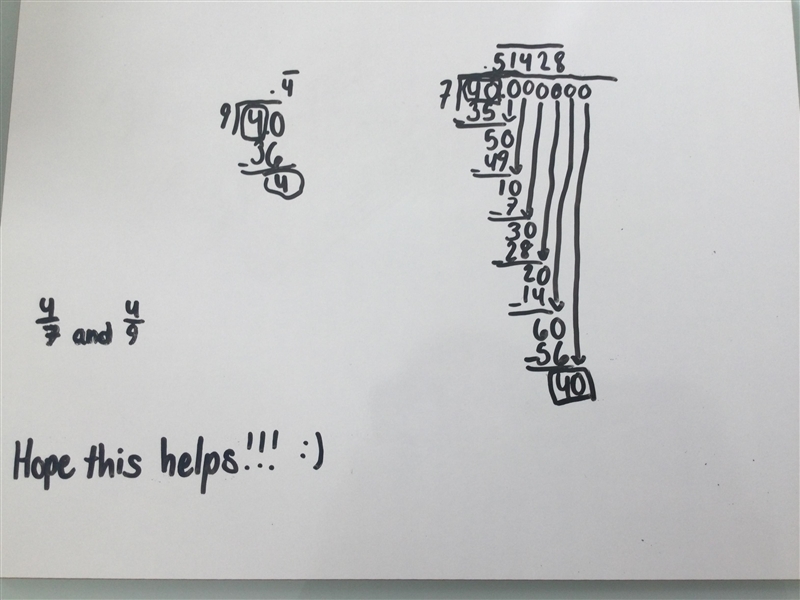 .4̅
9 40
- 36
4
.5̅1̅4̅2̅8̅
7 40.000000
- 35
50
- 49
10
- 7
30
- 28
20
- 14
60
- 56
40
4/7 and 4/9
Hope this helps!!! :)